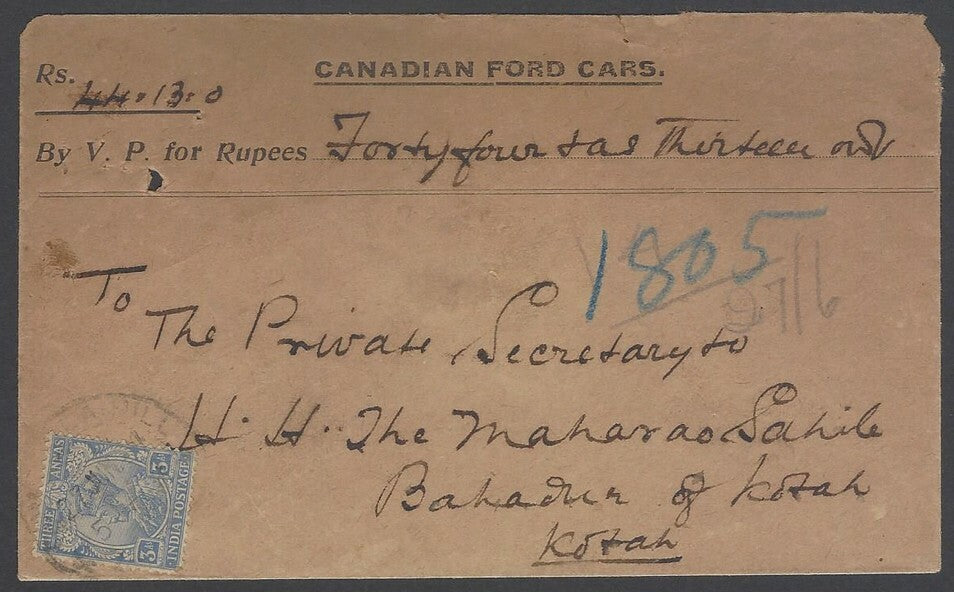 CANADIAN FORD CARS.
Rs. 44.13.0
By V. P. for Rupees Forty four & as Thirteen only
1805
7/6
To
The Private Secretary to
H. H. The Maharao Sahib
Bahadur of Kotah
Kotah
THREE ANNAS
3A
INDIA POSTAGE
3A